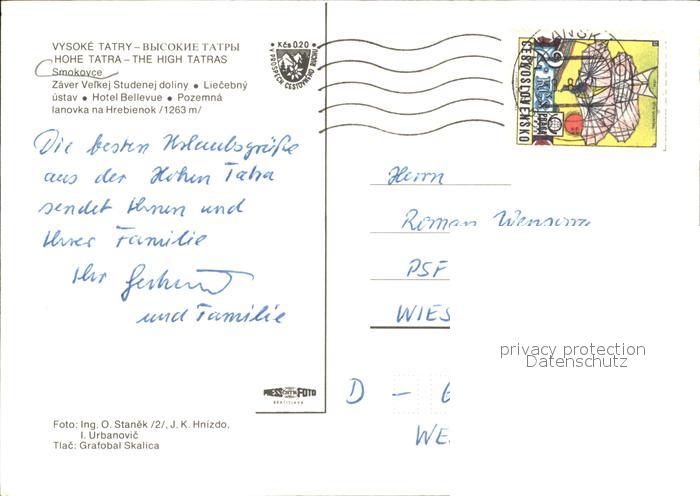 VYSOKÉ TATRY – ВЫСОКИЕ ТАТРЫ
HOHE TATRA – THE HIGH TATRAS
Smokovce
Záver Veľkej Studenej doliny ● Liečebný
ústav ● Hotel Bellevue ● Pozemná
lanovka na Hrebienok /1263 m/
Kčs 0,20
V PROSPECH CESTOVNÉHO RUCHU
ČESKOSLOVENSKO
Die besten Urlaubsgrüße
aus der Hohen Tatra
sendet Ihnen und
Ihrer Familie
Ihr
und Familie
Herrn
Roman
PSF
WIES
D –
WE
PRESSFOTO
BRATISLAVA
privacy protection
Datenschutz
Foto: Ing. O. Staněk /2/, J. K. Hnízdo,
I. Urbanovič
Tlač: Grafobal Skalica